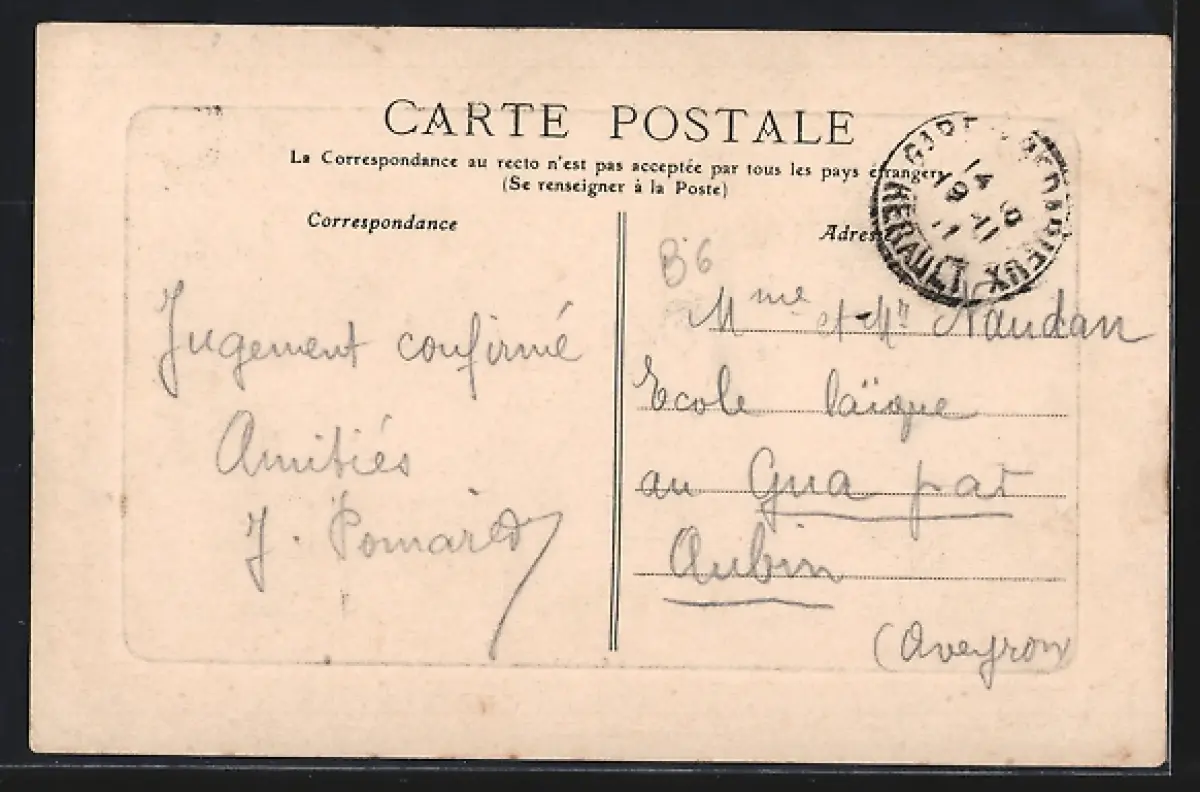 CARTE POSTALE
La Correspondance au recto n'est pas acceptée par tous les pays étrangers
(Se renseigner à la Poste)
Correspondance
Jugement confirmé
Amitiés
J. Pomarèd
Adres
B6
Mme et Mr Naudan
Ecole laïque
au Gua par
Aubin
(Aveyron)
BEDARIEUX
HERAULT
14
19
11